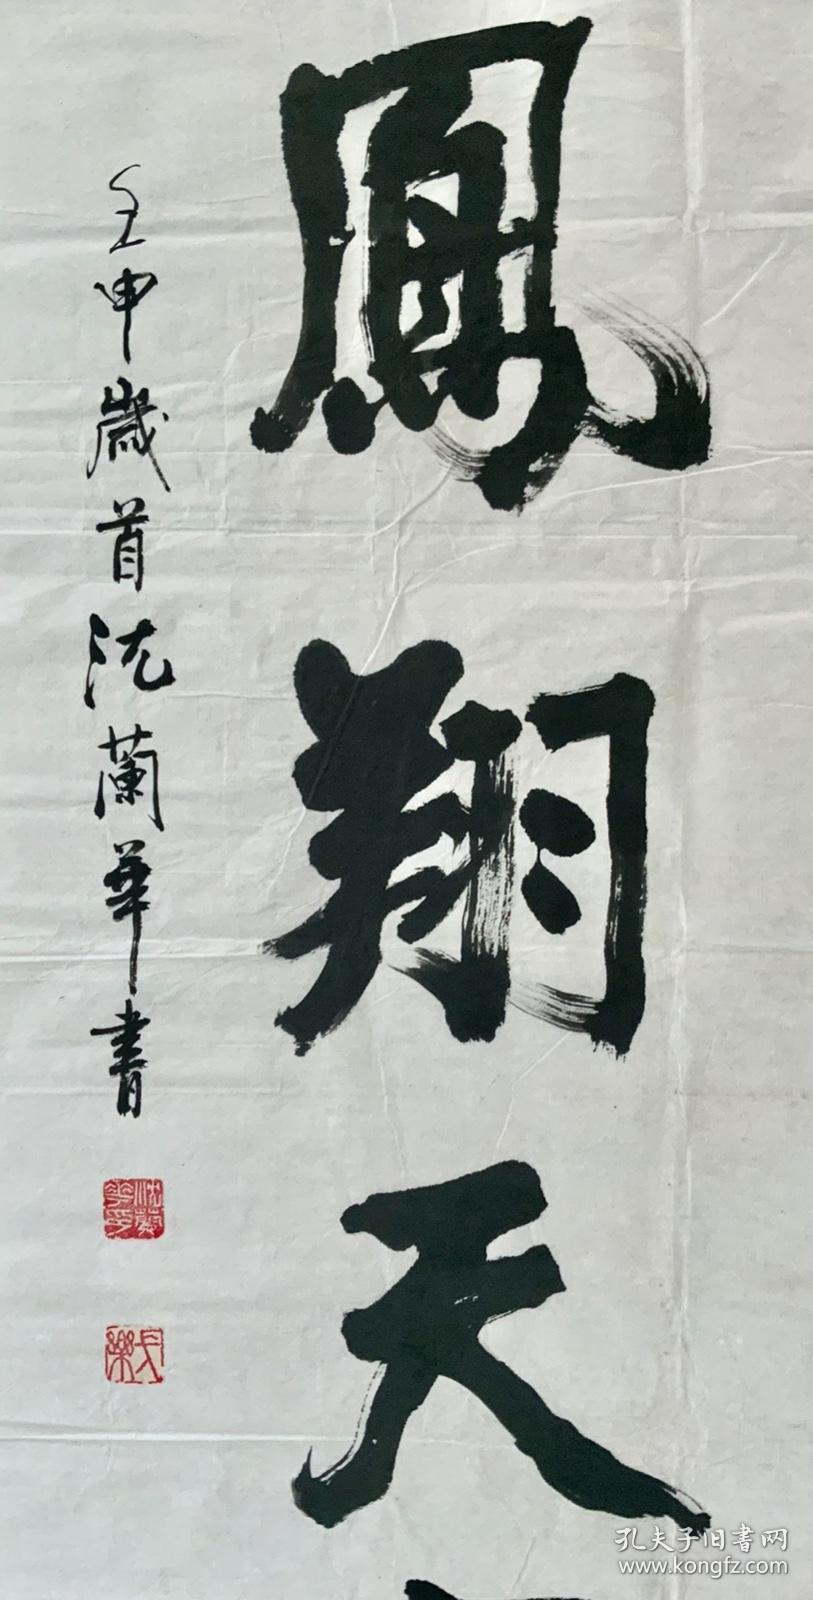 鳳翔天
壬申歲首沈蘭華書
沈蘭華印
孔夫子旧書网
www.kongfz.com